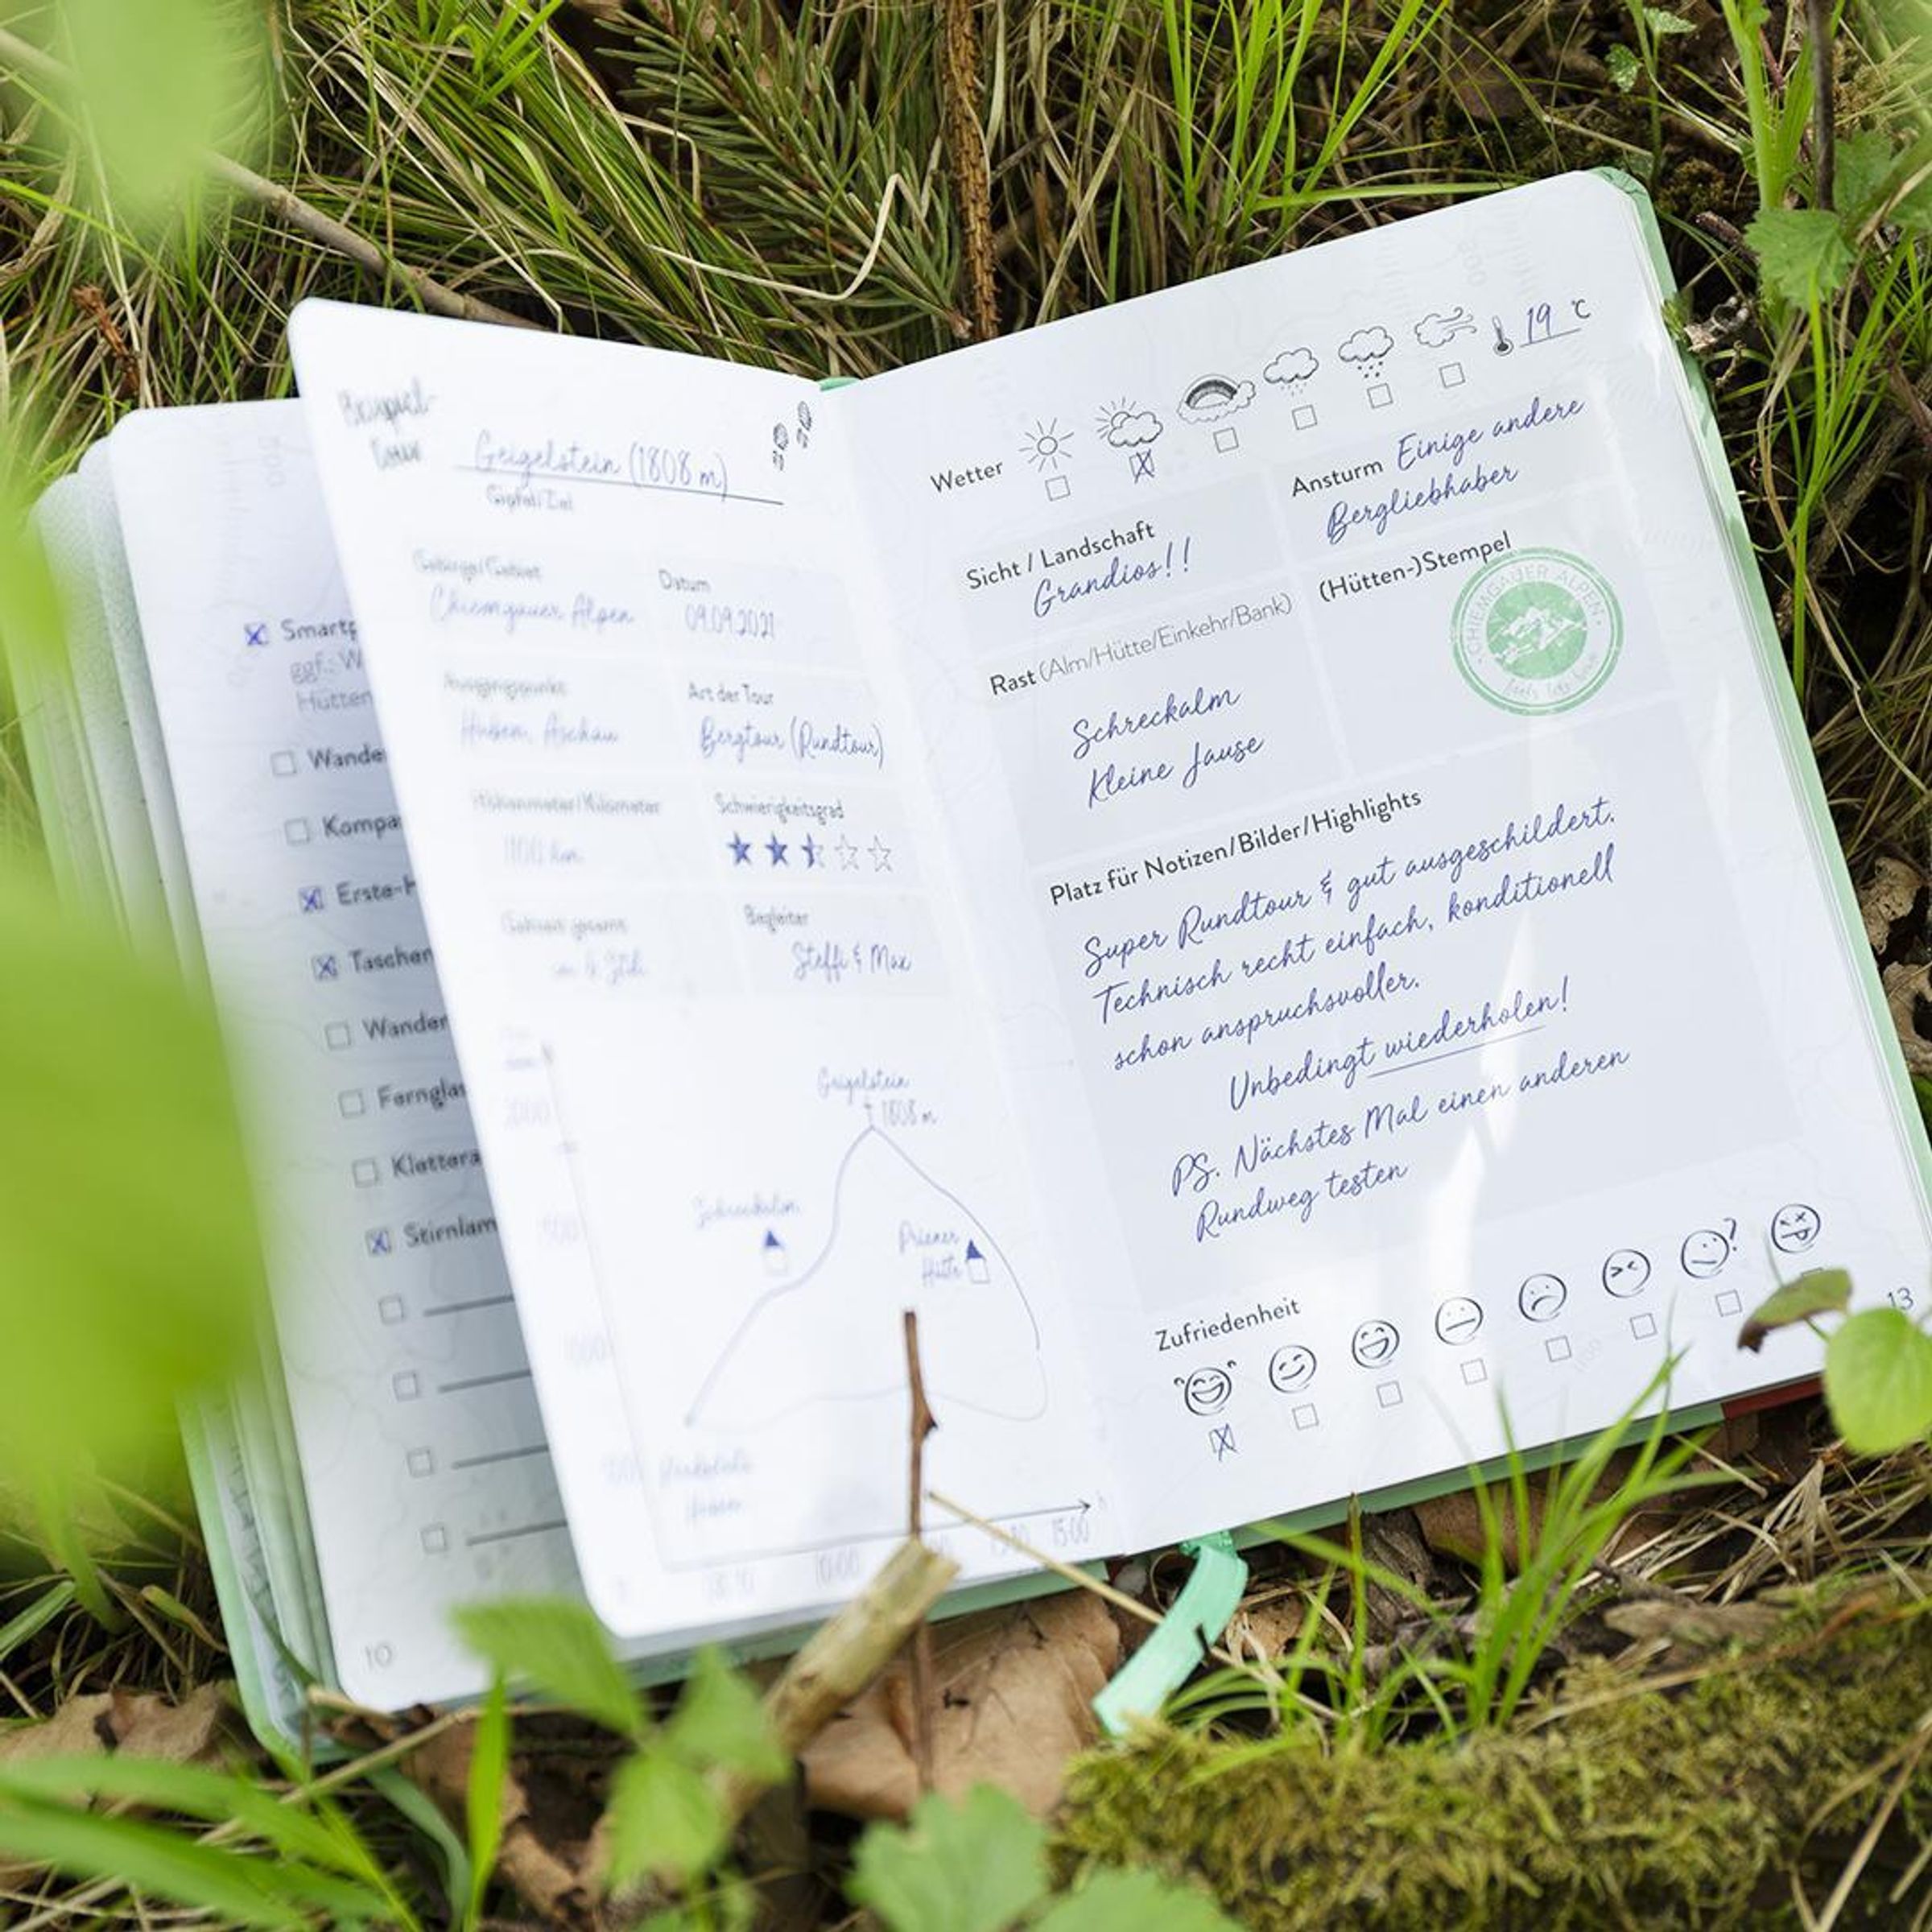 Smartp
ggf.: W
Hütten
Wande
Kompa
Erste-H
Taschen
Wander
Fernglas
Kletters
Stirnlam
10
Beispiel-
tour
Geigelstein (1808 m)
Gipfel/Ziel
Gebirge/Gebiet
Chiemgauer Alpen
Datum
09.09.2021
Ausgangspunkt
Huben, Aschau
Art der Tour
Bergtour (Rundtour)
Höhenmeter/Kilometer
Schwierigkeitsgrad
Gehzeit gesamt
ca. 4 Std.
Begleiter
Steffi & Max
Geigelstein
1808 m
Schreckalm
Priener
Hütte
10:00
15:00
Wetter
19 °C
Sicht / Landschaft
Grandios!!
Ansturm Einige andere
Bergliebhaber
Rast (Alm/Hütte/Einkehr/Bank)
Schreckalm
Kleine Jause
(Hütten-)Stempel
CHIEMGAUER ALPEN
Platz für Notizen/Bilder/Highlights
Super Rundtour & gut ausgeschildert.
Technisch recht einfach, konditionell
schon anspruchsvoller.
Unbedingt wiederholen!
PS. Nächstes Mal einen anderen
Rundweg testen
Zufriedenheit
13